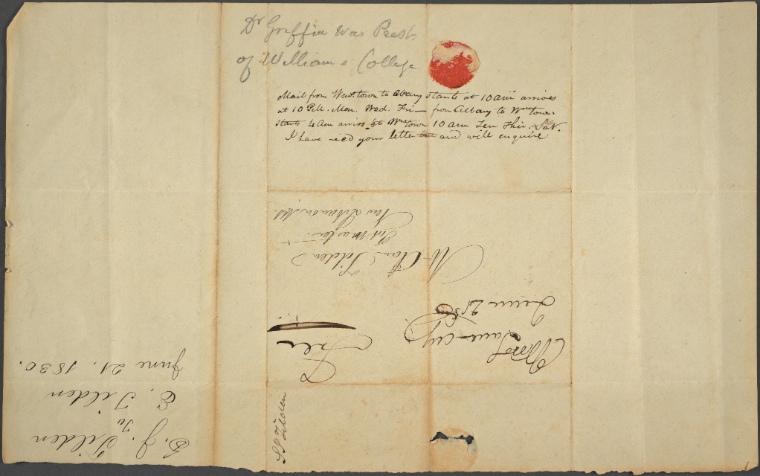 Dr Griffin was Prest.
of Williams College
Mail from Wmstown to Albany starts at 10 am arrives
at 10 P.M. Mon. Wed. Fri — from Albany to Wmstown
starts 4 am arrives at Wmstown 10 am Tue Thur. Sat.
I have recd your letter and will enquire
Mr Elam Tilden
Post Master
New Lebanon, N.Y.
June 21st
Free
S. J. Tilden
To
E. Tilden
June 21. 1830.
S J Tilden